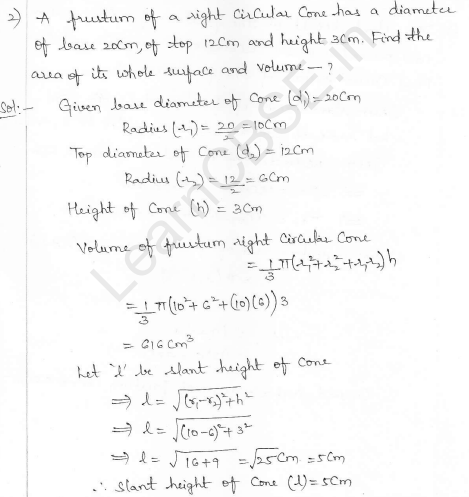 2) A frustum of a right Circular Cone has a diameter
of base 20cm, of top 12cm and height 3cm. Find the
area of its whole surface and volume — ?
Sol:- Given base diameter of Cone (d₁) = 20cm
Radius (r₁) = 20/2 = 10cm
Top diameter of Cone (d₂) = 12cm
Radius (r₂) = 12/2 = 6cm
Height of Cone (h) = 3cm
Volume of frustum right Circular Cone
= 1/3 π(r₁² + r₂² + r₁r₂)h
= 1/3 π(10² + 6² + (10)(6))3
= 616 cm³
Let 'l' be slant height of Cone
⇒ l = √((r₁-r₂)² + h²)
⇒ l = √((10-6)² + 3²)
⇒ l = √(16+9) = √25 cm = 5cm
∴ Slant height of Cone (l) = 5cm
LearnCBSE.in